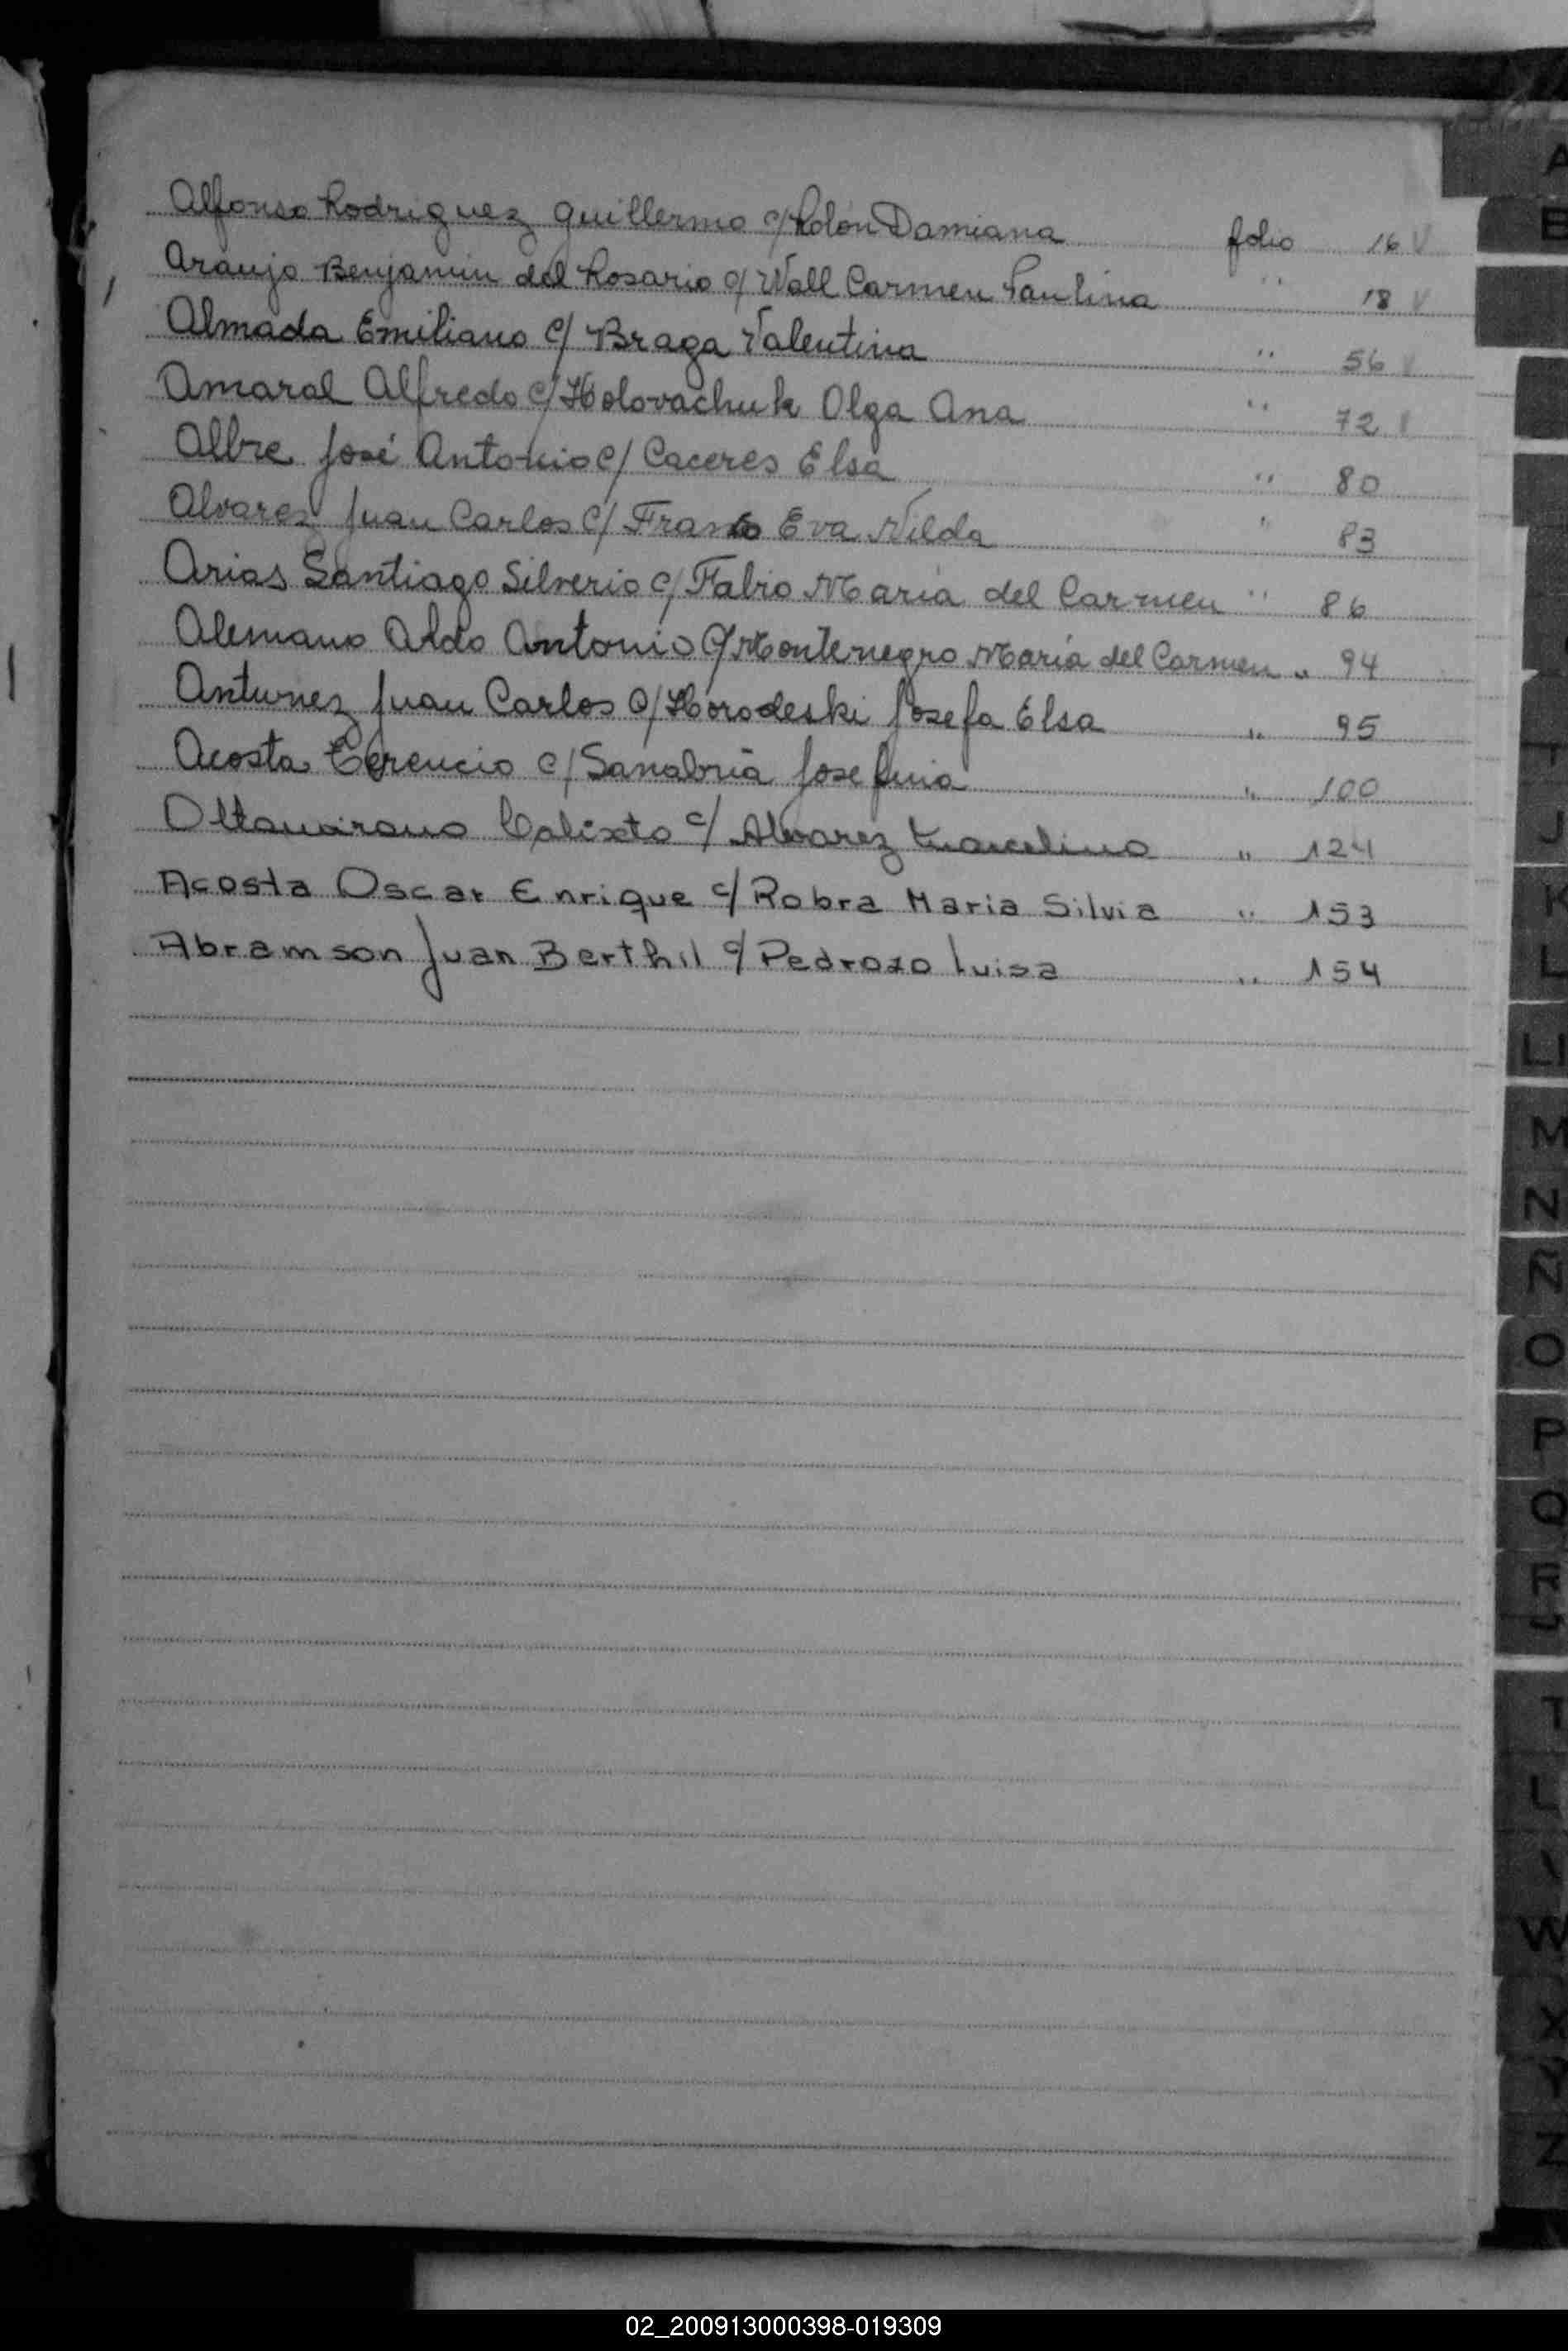 Alfonso Rodriguez Guillermo c/ Rolón Damiana folio 16 V
Araujo Benjamin del Rosario c/ Wall Carmen Paulina " 18 V
Almada Emiliano c/ Braga Valentina " 56 V
Amaral Alfredo c/ Holovachuk Olga Ana " 72 V
Albre José Antonio c/ Caceres Elsa " 80
Alvarez Juan Carlos c/ Eva Nilda " 83
Arias Santiago Silverio c/ Fabio María del Carmen " 86
Alemano Aldo Antonio c/ Montenegro María del Carmen " 94
Antunez Juan Carlos c/ Horodeski Josefa Elsa " 95
Acosta Terencio c/ Sanabria Josefina " 100
Altamirano Calixto c/ Alvarez Marcelina " 124
Acosta Oscar Enrique c/ Robra Maria Silvia " 153
Abramson Juan Berthil c/ Pedrozo Luisa " 154
A
B
I
J
K
L
Ll
M
N
Ñ
O
P
Q
R
T
W
X
Y
Z
02_200913000398-019309